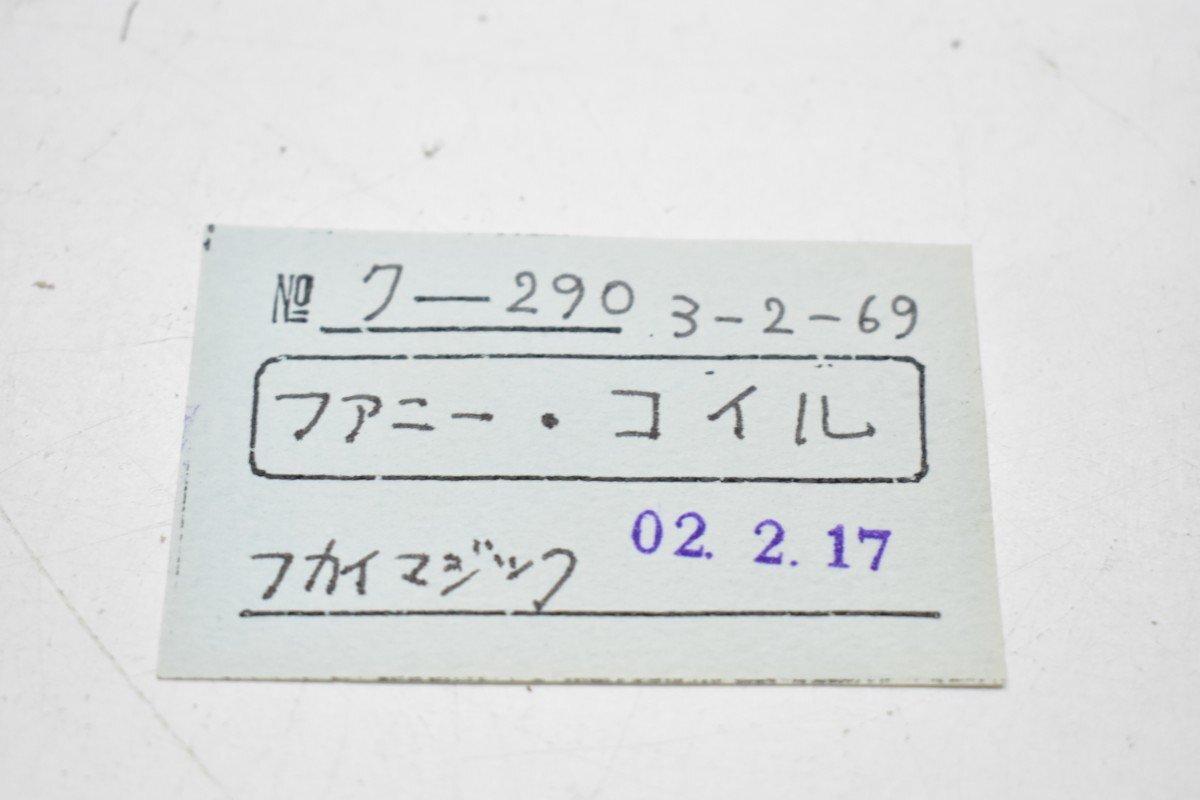 № フ—290 3-2-69
ファニー・コイル
02. 2. 17
フカイマジック